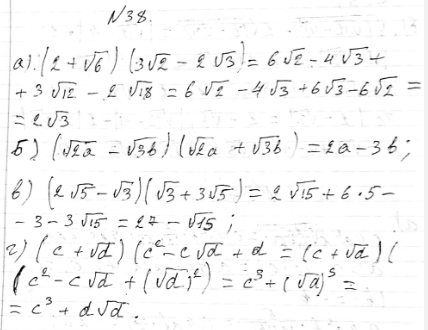 N38.
а) (2 + √6) (3√2 − 2√3) = 6√2 − 4√3 +
+ 3√12 − 2√18 = 6√2 − 4√3 + 6√3 − 6√2 =
= 2√3
б) (√2a − √3b) (√2a + √3b) = 2a − 3b;
в) (2√5 − √3)(√3 + 3√5) = 2√15 + 6·5 −
− 3 − 3√15 = 27 − √15;
г) (c + √d) (c² − c√d + d = (c + √d) (
(c² − c√d + (√d)²) = c³ + (√d)³ =
= c³ + d√d.